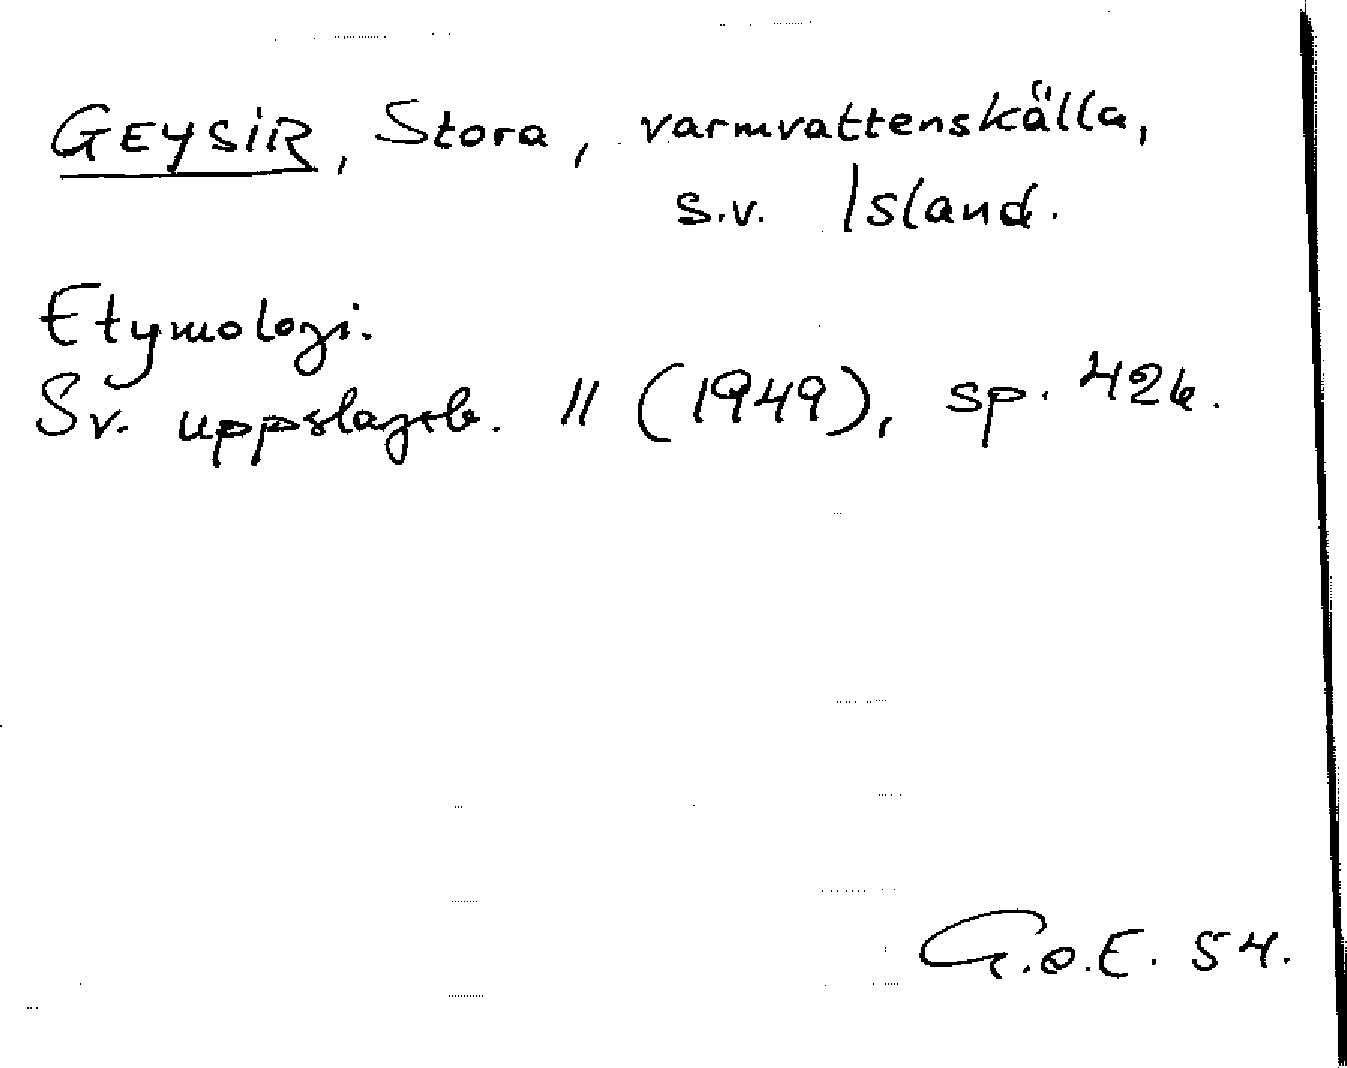 GEYSIR, Stora, varmvattenskälla,
s.v. Island.
Etymologi.
Sv. uppslagsb. 11 (1949), sp. 426.
G.o.E. 54.